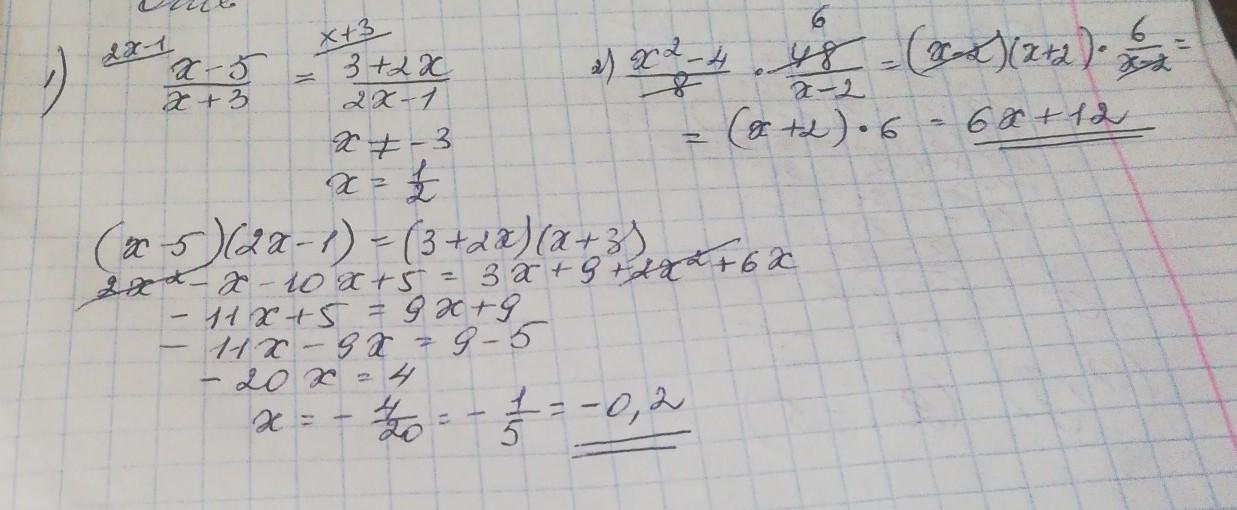 1) 2x-1 (x-5)/(x+3) = x+3 (3+2x)/(2x-1)
x ≠ -3
x = 1/2
(x-5)(2x-1) = (3+2x)(x+3)
2x² - x - 10x + 5 = 3x + 9 + 2x² + 6x
-11x + 5 = 9x + 9
-11x - 9x = 9 - 5
-20x = 4
x = -4/20 = -1/5 = -0,2
2) (x²-4)/8 · 48/(x-2) 6 = (x-2)(x+2) · 6/(x-2) =
= (x+2) · 6 = 6x+12